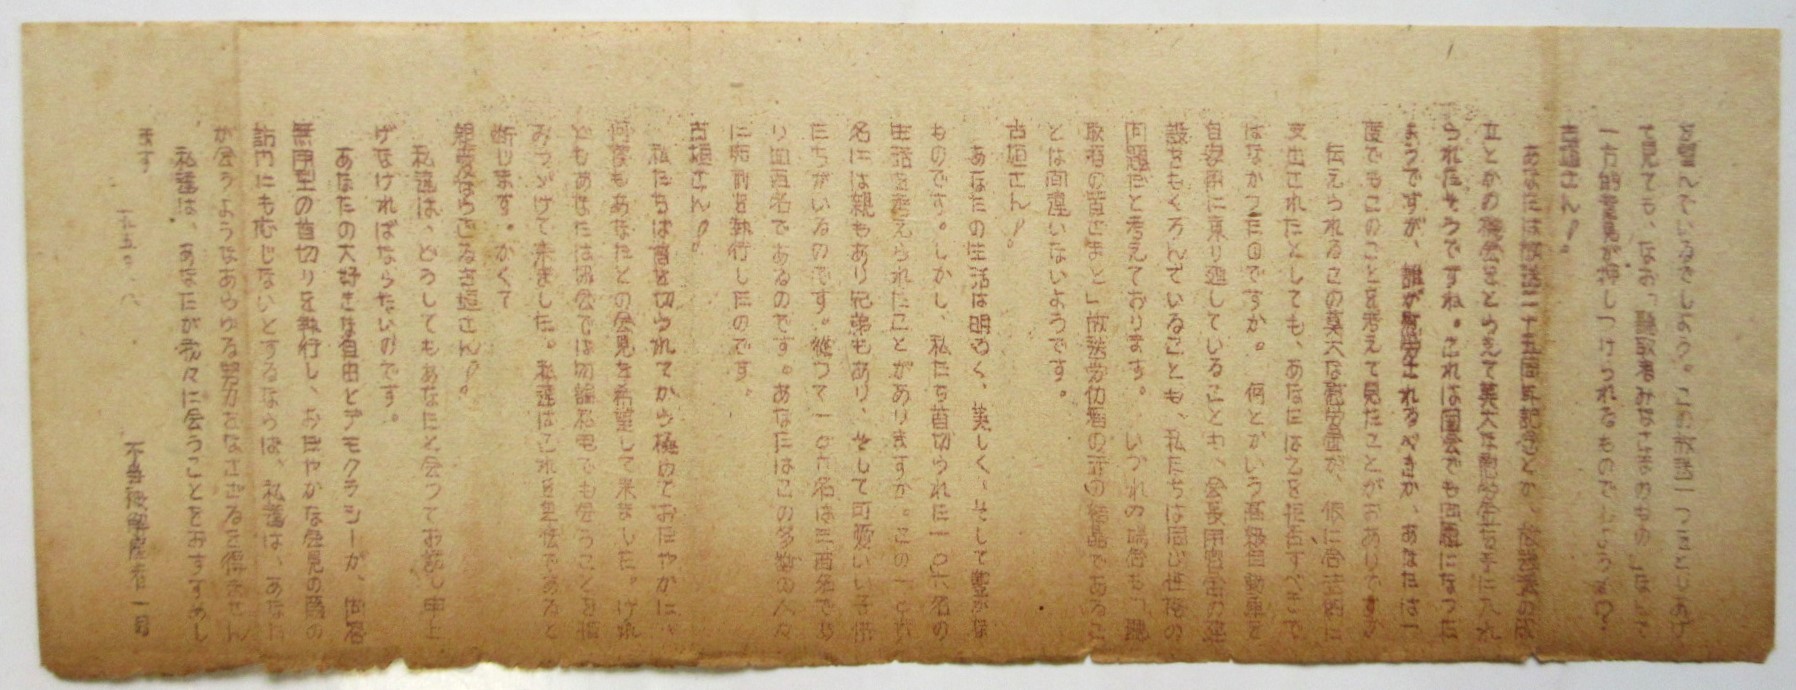 と望んでいるでしよう。この放送一つをとりあげ
て見ても、なお「聴取者みなさまのもの」なんて
一方的意見が押しつけられるものでしようか?
古垣さん!
あなたは放送二十五周年記念とか、放送法の成
立とかの機会をとらえて莫大な慰労金を手に入れ
られたそうですね。これは国会でも問題になつた
ようですが、誰が慰労されるべきか、あなたは一
度でもこのことを考えて見たことがおありですか
伝えられるこの莫大な慰労金が、仮に合法的に
支出されたとしても、あなたは之を拒否すべきで
はなかつたのですか。何とかいう高級自動車を
自家用に乗り廻していることも、会長用官舎の建
設をもくろんでいることも、私たちは同じ性格の
問題だと考えております。いづれの場合も「聴
取者の皆さまと」放送労仂者の汗の結晶であるこ
とは間違いないようです。
古垣さん!
あなたの生活は明るく、美しく、そして豊かな
ものです。しかし、私たち首切られた一〇六名の
生活を考えられたことがありますか。この一〇六
名には親もあり兄弟もあり、そして可愛いい子供
たちがいるのです。従つて一〇六名は三百名であ
り四百名であるのです。あなたはこの多数の人々
に死刑を執行したのです。
古垣さん!
私たちは首を切られてから極めておだやかに、
何度もあなたとの会見を希望して来ました。けれ
どもあなたは協会では勿論私宅でも会うことを拒
みつづけて来ました。私達はこれを卑怯であると
断じます。かくて
親愛ならざる古垣さん!。
私達は、どうしてもあなたと会つてお話し申上
げなければならないのです。
あなたの大好きな自由とデモクラシーが、問答
無用型の首切りを執行し、おだやかな会見の
訪内にも応じないとするならば、私達は、あなた
が会うようなあらゆる努力をなさざるを得ません
私達は、あなたが我々に会うことをおすすめし
ます
一九五〇、八
不当被解雇者一同